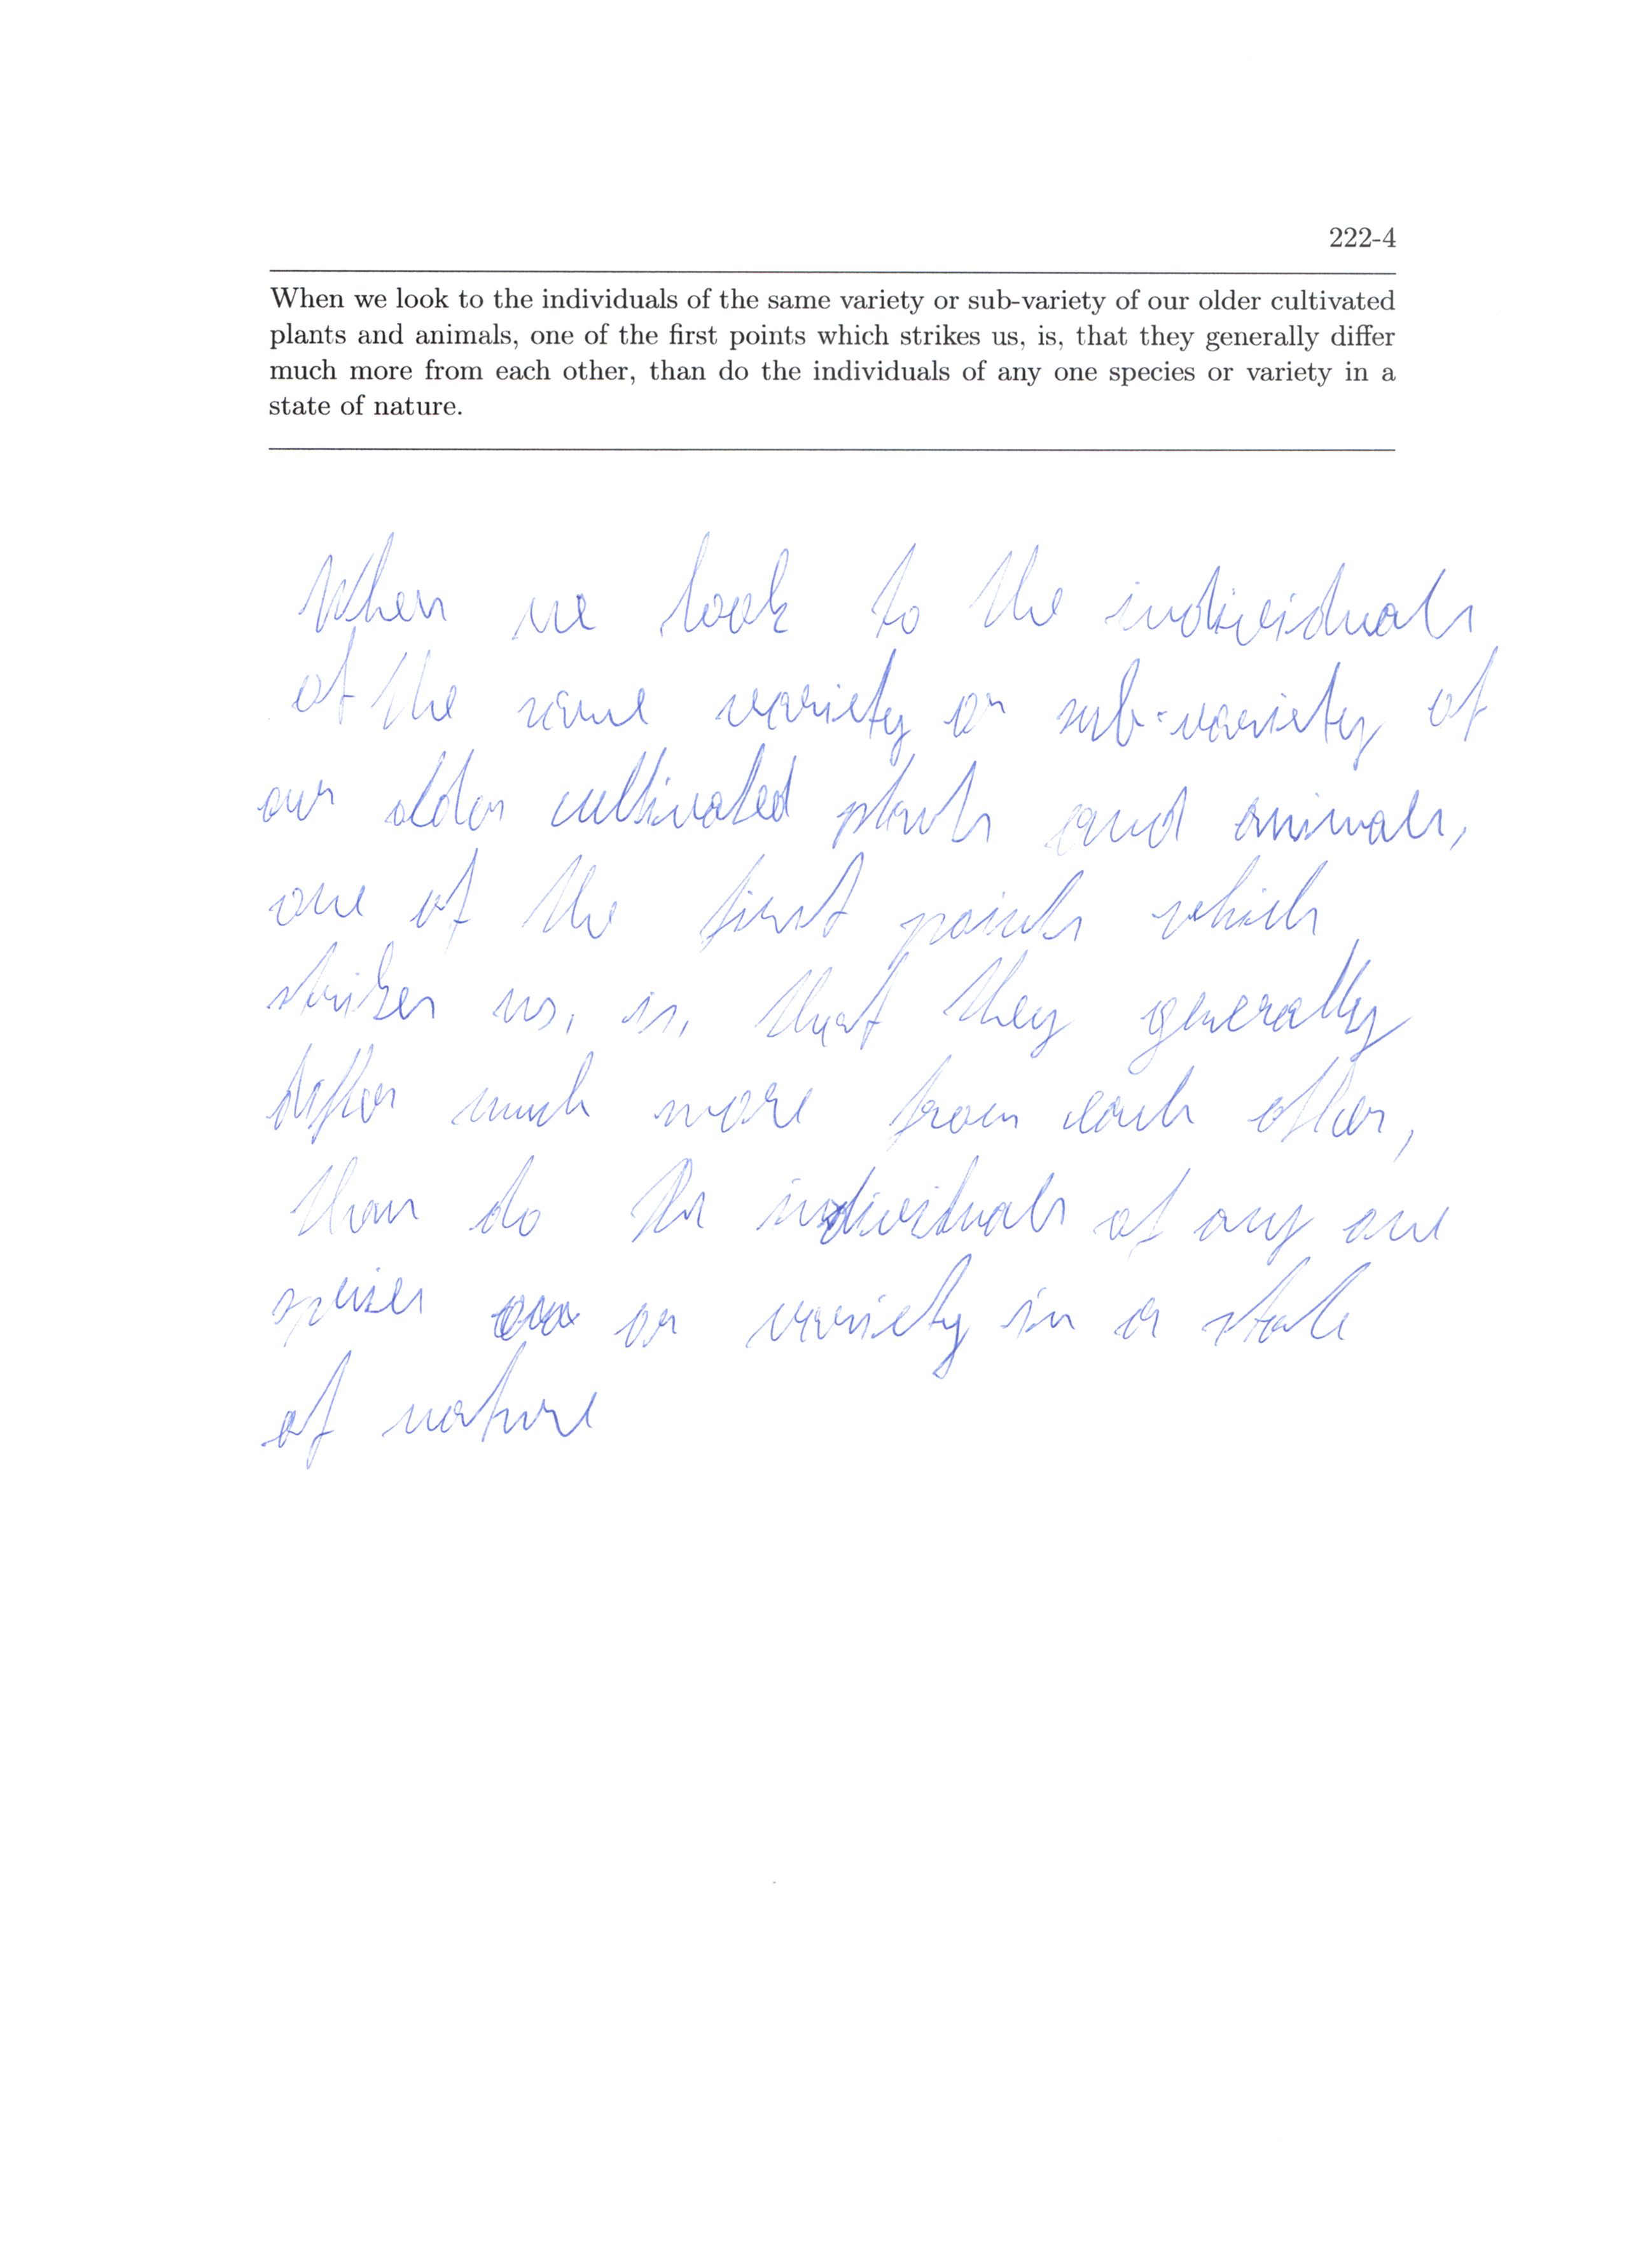 222-4
When we look to the individuals of the same variety or sub-variety of our older cultivated
plants and animals, one of the first points which strikes us, is, that they generally differ
much more from each other, than do the individuals of any one species or variety in a
state of nature.
When we look to the individuals
of the same variety or sub-variety of
our older cultivated plants and animals,
one of the first points which
strikes us, is, that they generally
differ much more from each other,
than do the individuals of any one
species or variety in a state
of nature